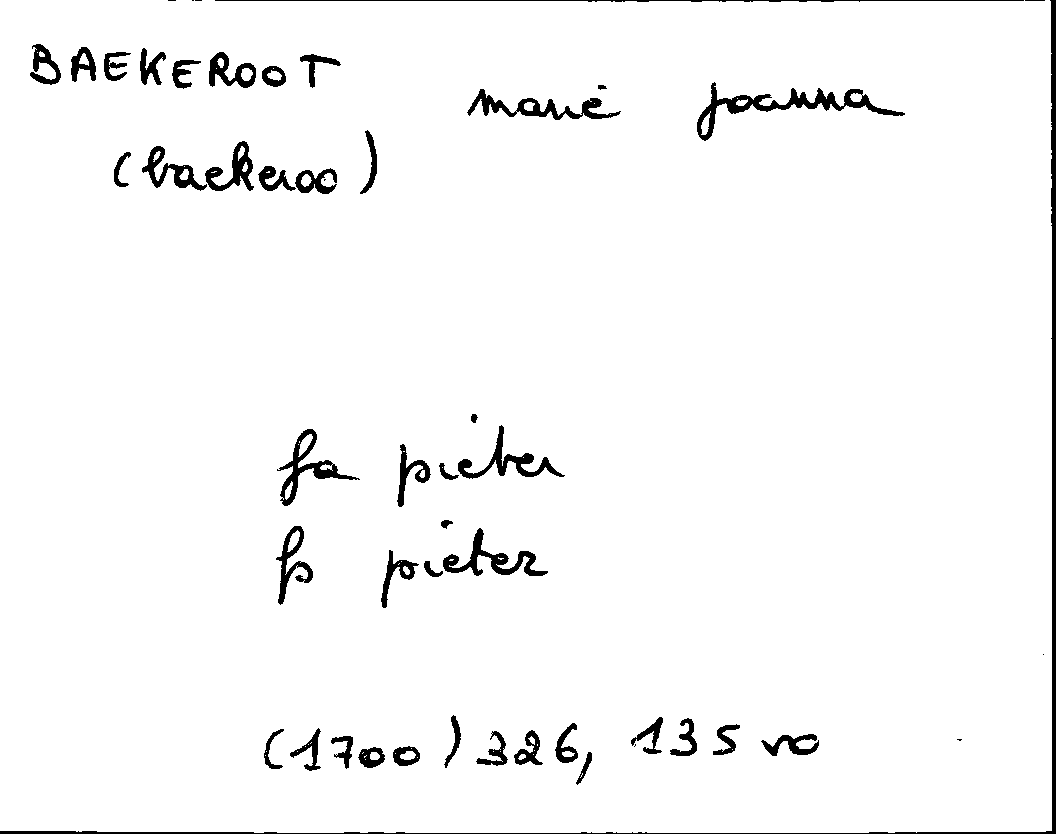 BAEKEROOT marie joanna
(baekeroo)
fa pieter
fs pieter
(1700) 326, 135 vo